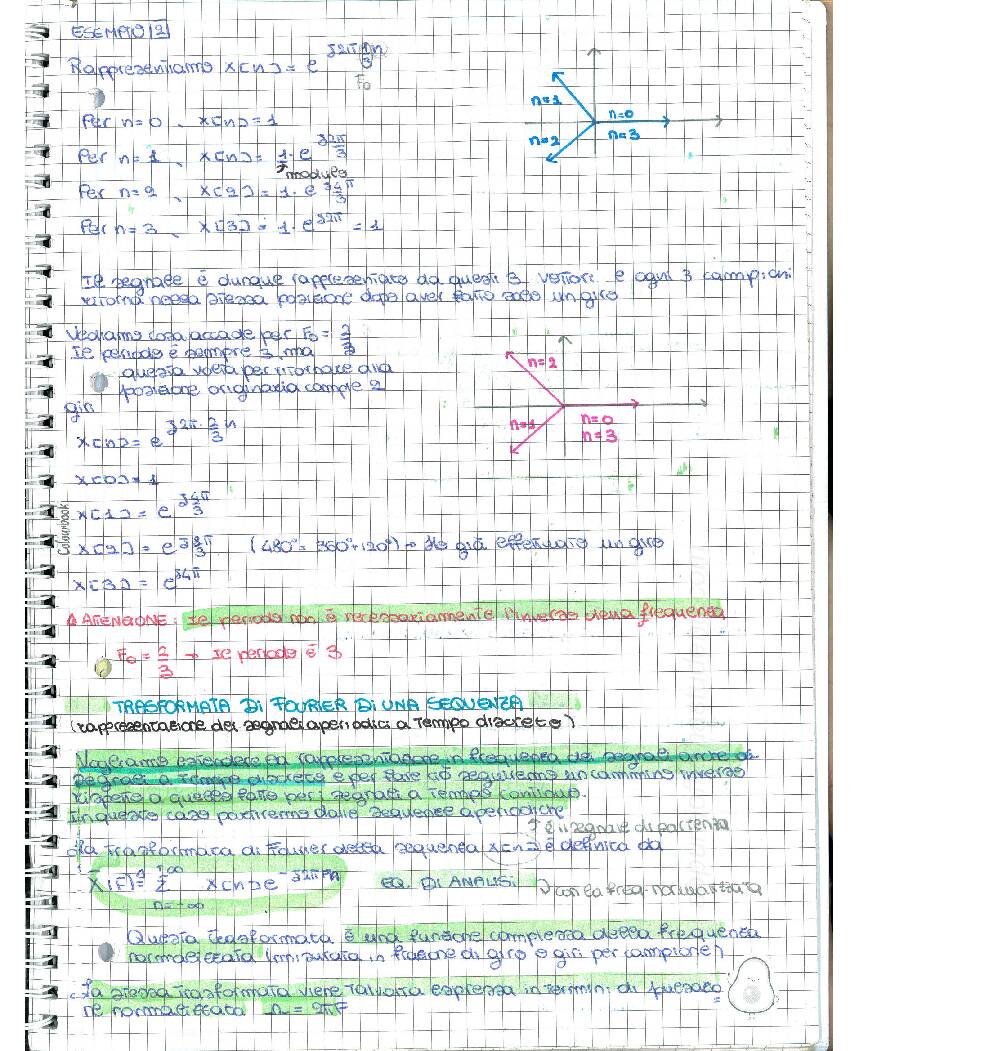 ESEMPIO 2
Rappresentiamo x[n] = e^{j2π 1/3 n}
F₀
Per n=0, x[n] = 1
Per n=1, x[n] = 1·e^{j 2π/3}
modulo
Per n=2, x[2] = 1·e^{j 4/3 π}
Per n=3, x[3] = 1·e^{j2π} = 1
n=1
n=0
n=2
n=3
Il segnale è dunque rappresentato da questi 3 vettori e ogni 3 campioni
ritorna nella stessa posizione dopo aver fatto solo un giro
Vediamo cosa accade per F₀ = 2/3
Il periodo è sempre 3, ma
questa volta per ritornare alla
posizione originaria compie 2
giri
n=2
n=1
n=0
n=3
x[n] = e^{j2π · 2/3 n}
x[0] = 1
x[1] = e^{j 4/3 π}
x[2] = e^{j 8/3 π} (480° = 360° + 120°) → Ho già effettuato un giro
x[3] = e^{j4π}
Colourbook
ATTENZIONE: Il periodo non è necessariamente l'inverso della frequenza
F₀ = 2/3 → Il periodo è 3
TRASFORMATA DI FOURIER DI UNA SEQUENZA
(rappresentazione dei segnali aperiodici a Tempo discreto)
Vogliamo estendere la rappresentazione in frequenza dei segnali anche ai
segnali a Tempo discreto e per fare ciò seguiremo un cammino inverso
rispetto a quello fatto per i segnali a Tempo continuo.
In questo caso partiremo dalle sequenze aperiodiche
↑ è il segnale di partenza
La Trasformata di Fourier della sequenza x[n] è definita da
X(F) ≜ Σ_{n=-∞}^{+∞} x[n] e^{-j2πFn} EQ. DI ANALISI con la freq. normalizzata
Questa trasformata è una funzione complessa della frequenza
normalizzata (misurata in frazione di giro o giri per campione)
La stessa Trasformata viene talvolta espressa in termini di pulsazio
ne normalizzata Ω = 2πF